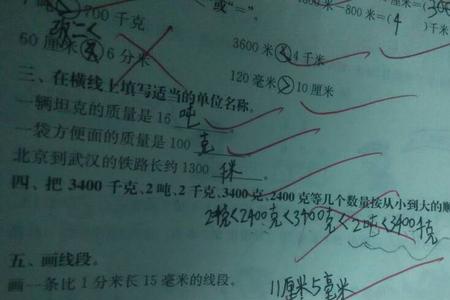 700千克 或“=”。 米-800米=(4)千米
60厘米 6分米 3600米<4千米
120毫米>10厘米
三、在横线上填写适当的单位名称。
一辆坦克的质量是16吨。
一袋方便面的质量是100克。
北京到武汉的铁路长约1300
四、把3400千克、2吨、2千克、3400克、2400克等几个数量按从小到大的顺
2400克<3400克<2吨<3400千克
五、画线段。
画一条比1分米长15毫米的线段。
11厘米5毫米